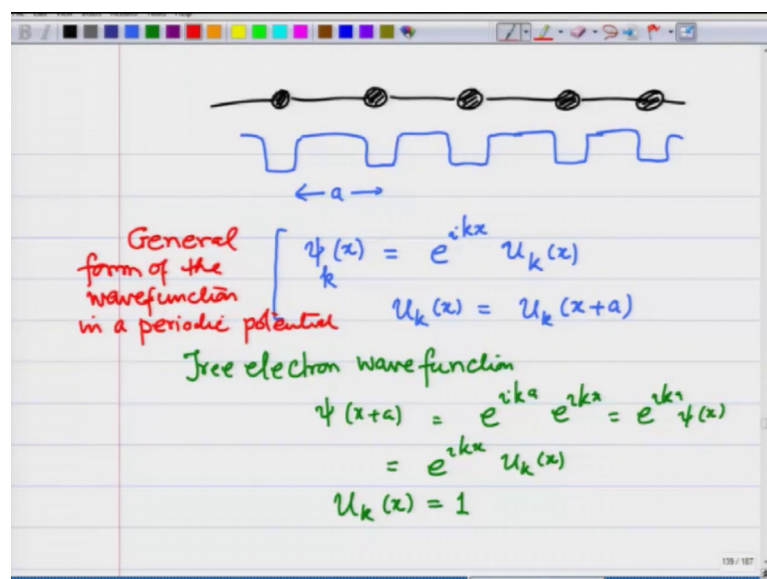 ← a →
General
form of the
wavefunction
in a periodic potential
ψ_k(x) = e^{ikx} u_k(x)
u_k(x) = u_k(x+a)
Free electron wavefunction
ψ(x+a) = e^{ika} e^{ikx} = e^{ika} ψ(x)
= e^{ikx} u_k(x)
u_k(x) = 1
139 / 187